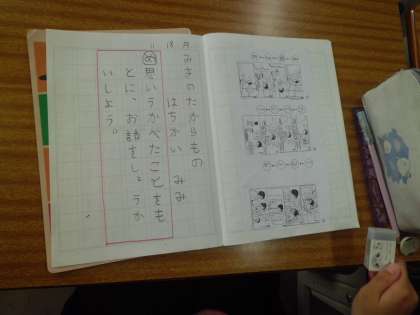 11 18 月
みきのたからもの
はちかい みみ
め 思いうかべたことをも
とに、お話をしょうか
いしよう。